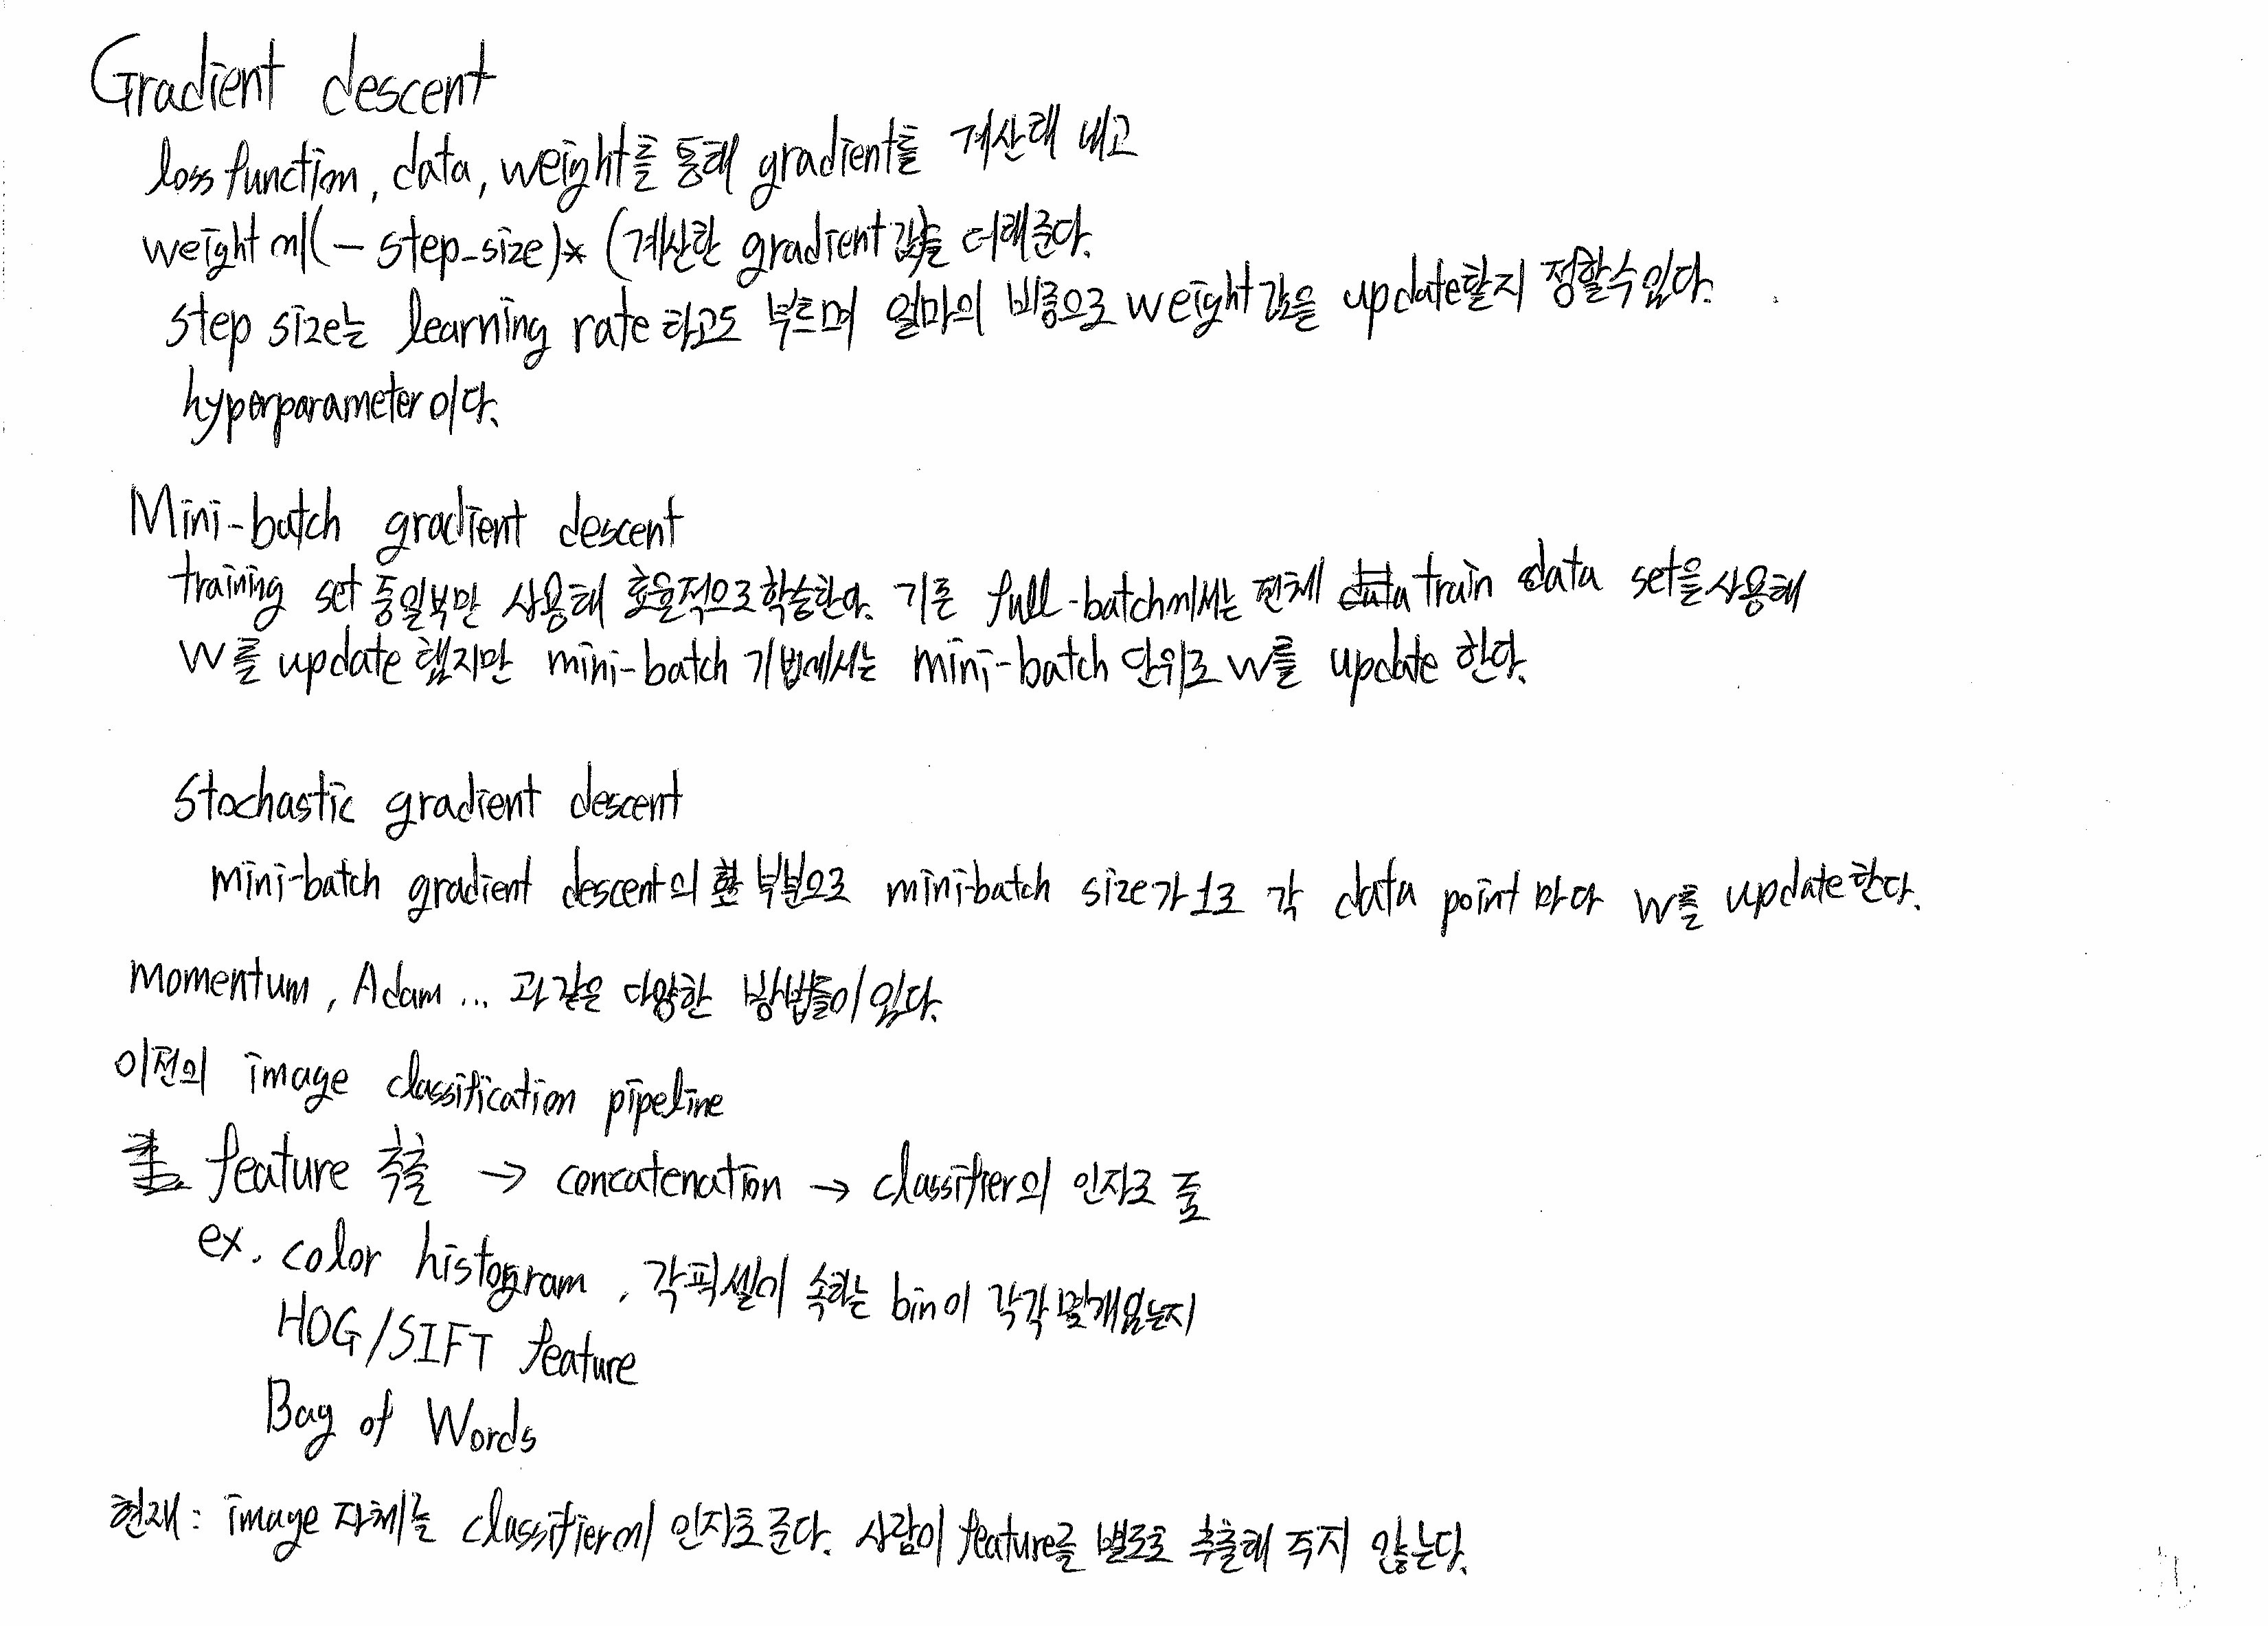 Gradient descent
loss function, data, weight를 통해 gradient를 계산해 내고
weight에 (- step-size)* (계산한 gradient값)을 더해준다.
step size는 learning rate라고도 부르며 얼마의 비중으로 weight값을 update할지 정할수있다.
hyperparameter이다.
Mini-batch gradient descent
training set 중일부만 사용해 효율적으로학습한다. 기존 full-batch에서는 전체 train data set을 사용해
W를 update 했지만 mini-batch 기법에서는 mini-batch 단위로 W를 update 한다.
Stochastic gradient descent
mini-batch gradient descent의 한 부분으로 mini-batch size가 1로 각 data point 마다 W를 update한다.
momentum, Adam ... 과 같은 다양한 방법들이 있다.
이전의 image classification pipeline
feature 추출 → concatenation → classifier의 인자로 줌
ex. color histogram, 각픽셀이 속하는 bin이 각각 몇개있는지
HOG/SIFT feature
Bag of Words
현재: image 자체를 classifier에 인자로 준다. 사람이 feature를 별도로 추출해 주지 않는다.